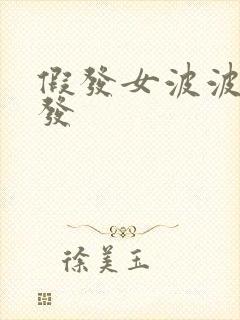 假發女波波
發
徐美玉